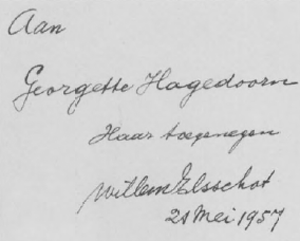 Aan
Georgette Hagedoorn
Haar toegenegen
Willem Elsschot
21 Mei 1957